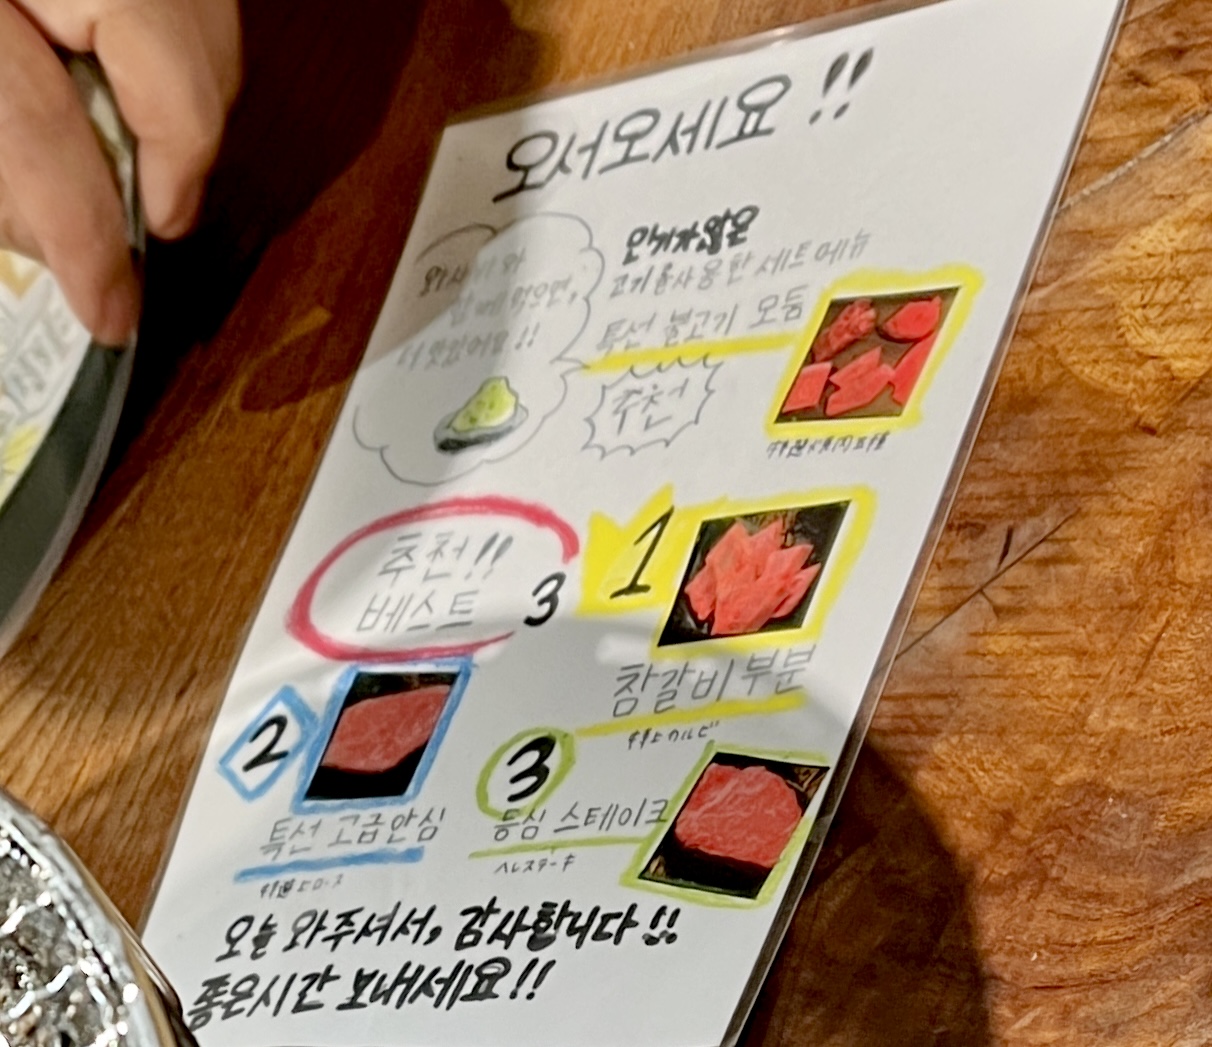 오서오세요!!
와사비와
함께 먹으면,
더 맛있어요!!
인기가많은
고기를사용한 세트메뉴
특선 불고기 모둠
추천
特選焼肉五種
추천!!
베스트 3
1
참갈비부분
特上カルビ
2
특선 고급안심
特選上ロース
3
등심 스테이크
ヘレステーキ
오늘 와주셔서, 감사합니다!!
좋은시간 보내세요!!